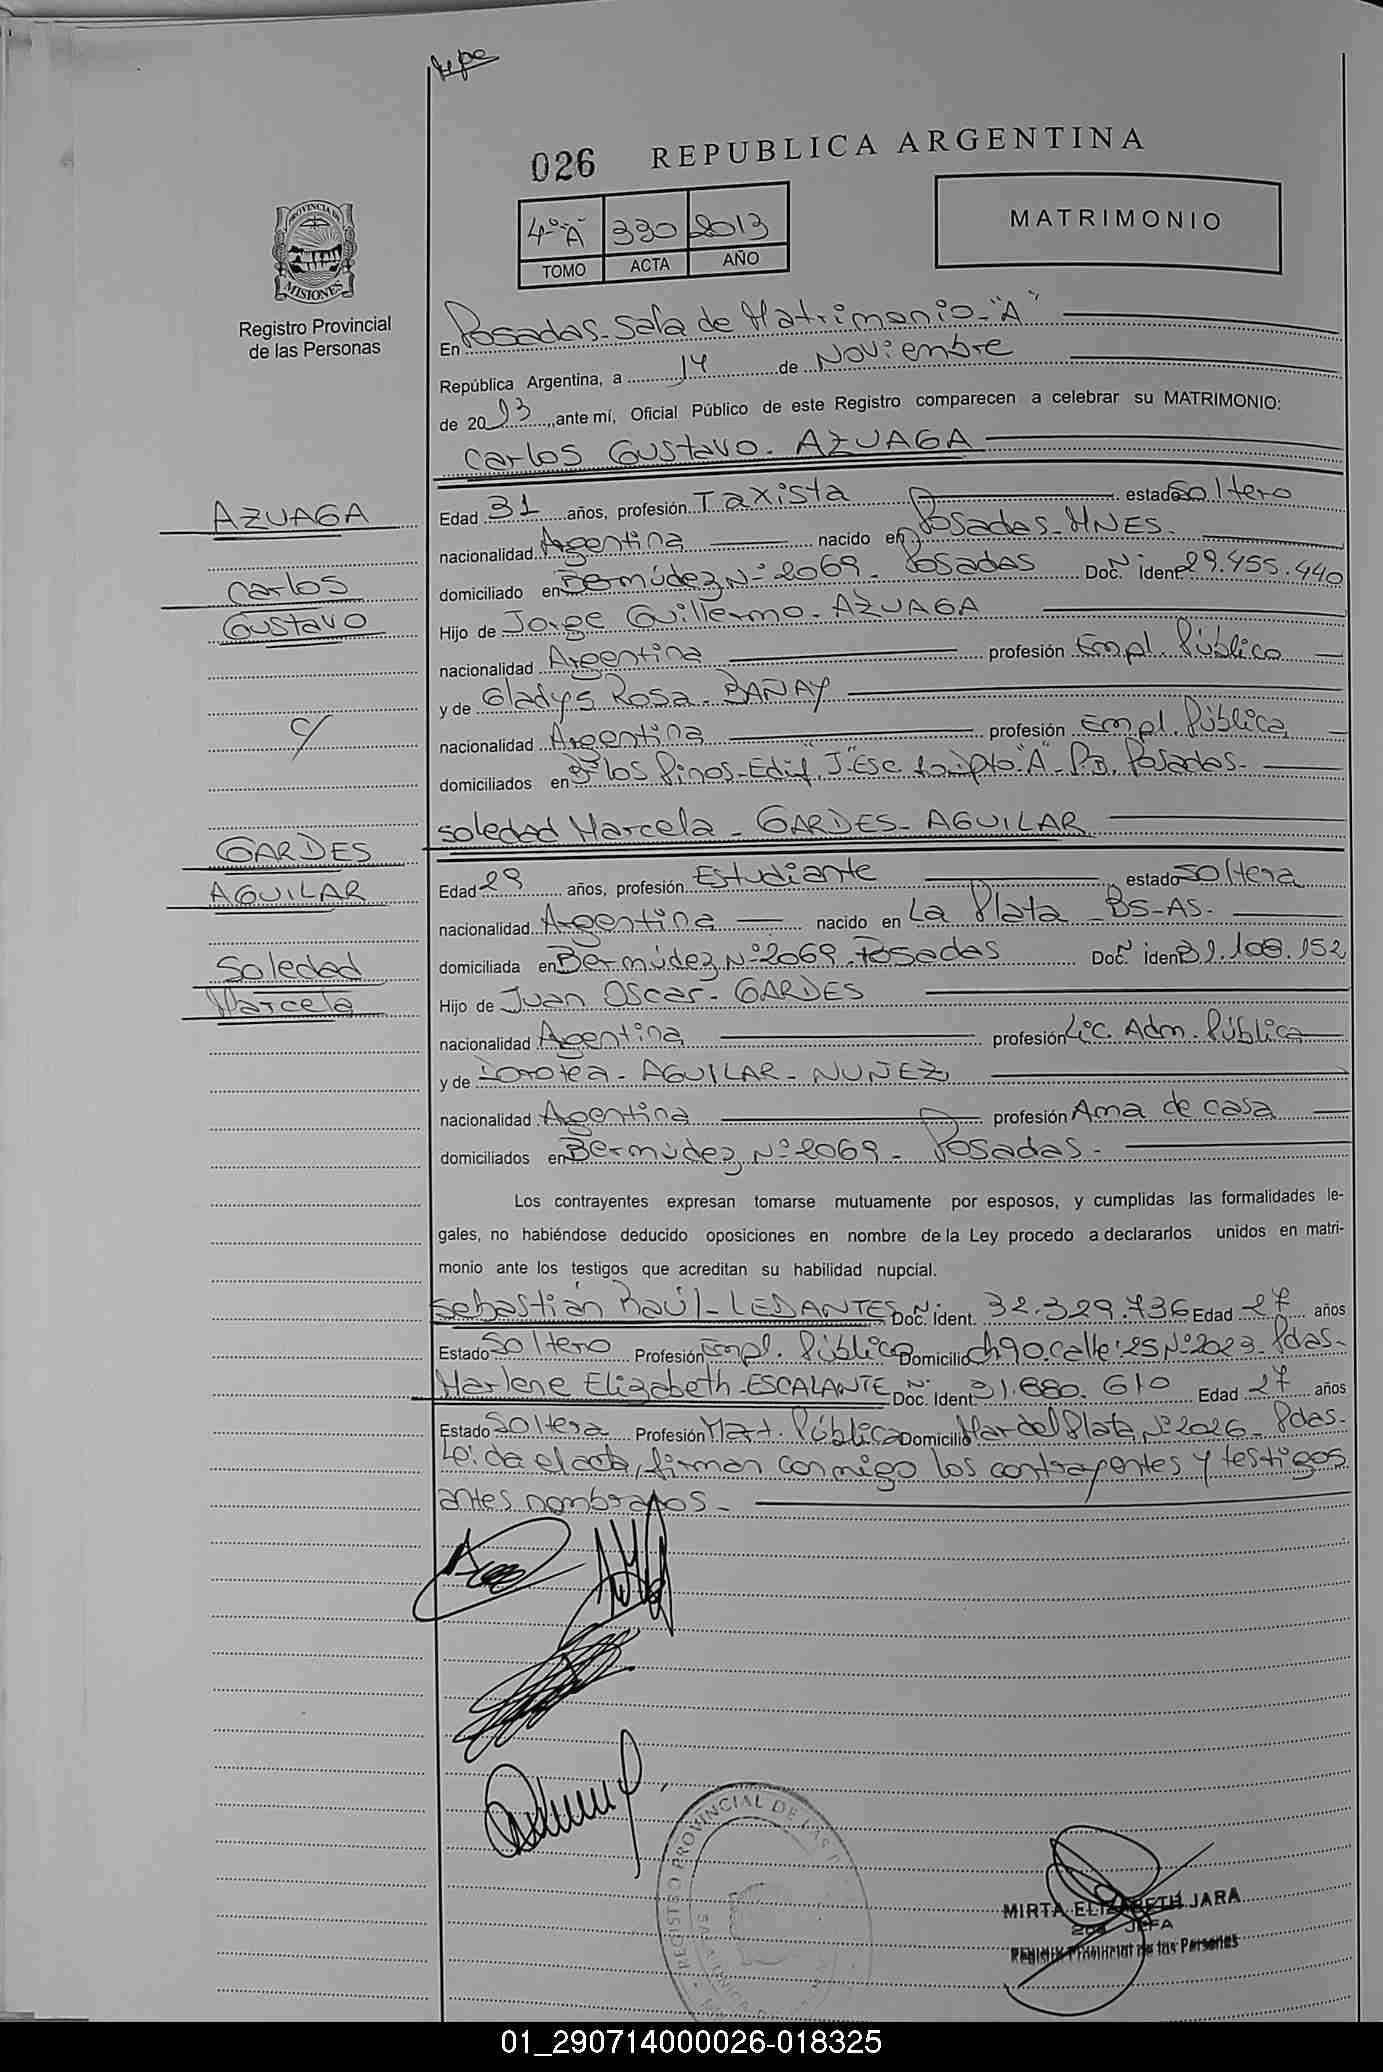 026 REPUBLICA ARGENTINA
4º "A" 330 2013
TOMO ACTA AÑO
MATRIMONIO
PROVINCIA DE
MISIONES
Registro Provincial
de las Personas
En Posadas-Sala de Matrimonio-"A"
República Argentina, a 14 de Noviembre
de 2013, ante mí, Oficial Público de este Registro comparecen a celebrar su MATRIMONIO:
Carlos Gustavo. AZUAGA
AZUAGA
Carlos
Gustavo
c/
GARDES
AGUILAR
Soledad
Marcela
Edad 31 años, profesión Taxista estado Soltero
nacionalidad Argentina nacido en Posadas-MNES.
domiciliado en Bermúdez Nº 2069- Posadas Doc. Nº ident. 29.455.440
Hijo de Jorge Guillermo-AZUAGA
nacionalidad Argentina profesión Empl. Público
y de Gladys Rosa-BAÑAY
nacionalidad Argentina profesión Empl. Pública
domiciliados en Bº los Pinos-Edif. "J" Esc Dpto "A"-P.B. Posadas-
Soledad Marcela-GARDES-AGUILAR
Edad 29 años, profesión Estudiante estado Soltera
nacionalidad Argentina nacido en La Plata-BS-AS-
domiciliada en Bermúdez Nº 2069-Posadas Doc. Nº ident. 31.108.152
Hijo de Juan Oscar-GARDES
nacionalidad Argentina profesión Lic. Adm. Pública
y de Dorotea-AGUILAR-NUÑEZ
nacionalidad Argentina profesión Ama de casa
domiciliados en Bermúdez Nº 2069- Posadas-
Los contrayentes expresan tomarse mutuamente por esposos, y cumplidas las formalidades le-
gales, no habiéndose deducido oposiciones en nombre de la Ley procedo a declararlos unidos en matri-
monio ante los testigos que acreditan su habilidad nupcial.
Sebastián Raúl-LEDANTES Doc. Nº Ident. 32.329.736 Edad 27 años
Estado Soltero Profesión Empl. Público Domicilio Ch 90. Calle 25 Nº 2023-Pdas-
Marlene Elizabeth-ESCALANTE Doc. Nº Ident. 31.880.610 Edad 27 años
Estado Soltera Profesión Mart. Pública Domicilio Mar del Plata Nº 2026-Pdas-
Leída el acta, firman conmigo los contrayentes y testigos
antes nombrados-
REGISTRO PROVINCIAL DE LAS
MIRTA ELIZABETH JARA
2da JEFA
Registro Provincial de las Personas
01_290714000026-018325